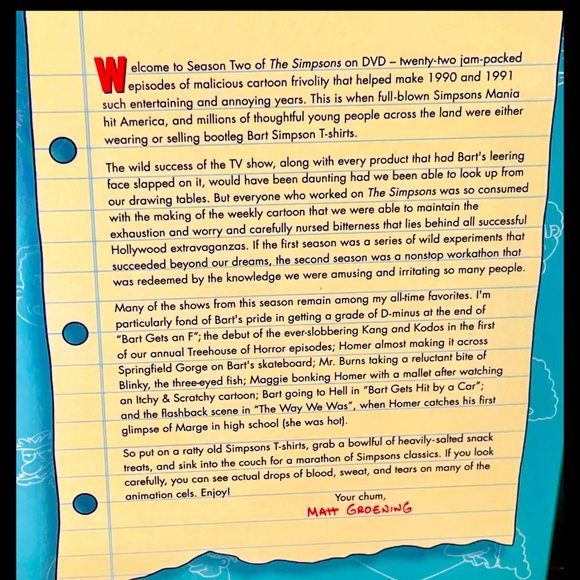 Welcome to Season Two of The Simpsons on DVD – twenty-two jam-packed
episodes of malicious cartoon frivolity that helped make 1990 and 1991
such entertaining and annoying years. This is when full-blown Simpsons Mania
hit America, and millions of thoughtful young people across the land were either
wearing or selling bootleg Bart Simpson T-shirts.
The wild success of the TV show, along with every product that had Bart's leering
face slapped on it, would have been daunting had we been able to look up from
our drawing tables. But everyone who worked on The Simpsons was so consumed
with the making of the weekly cartoon that we were able to maintain the
exhaustion and worry and carefully nursed bitterness that lies behind all successful
Hollywood extravaganzas. If the first season was a series of wild experiments that
succeeded beyond our dreams, the second season was a nonstop workathon that
was redeemed by the knowledge we were amusing and irritating so many people.
Many of the shows from this season remain among my all-time favorites. I'm
particularly fond of Bart's pride in getting a grade of D-minus at the end of
"Bart Gets an F"; the debut of the ever-slobbering Kang and Kodos in the first
of our annual Treehouse of Horror episodes; Homer almost making it across
Springfield Gorge on Bart's skateboard; Mr. Burns taking a reluctant bite of
Blinky, the three-eyed fish; Maggie bonking Homer with a mallet after watching
an Itchy & Scratchy cartoon; Bart going to Hell in "Bart Gets Hit by a Car";
and the flashback scene in "The Way We Was", when Homer catches his first
glimpse of Marge in high school (she was hot).
So put on a ratty old Simpsons T-shirts, grab a bowlful of heavily-salted snack
treats, and sink into the couch for a marathon of Simpsons classics. If you look
carefully, you can see actual drops of blood, sweat, and tears on many of the
animation cels. Enjoy!
Your chum,
MATT GROENING